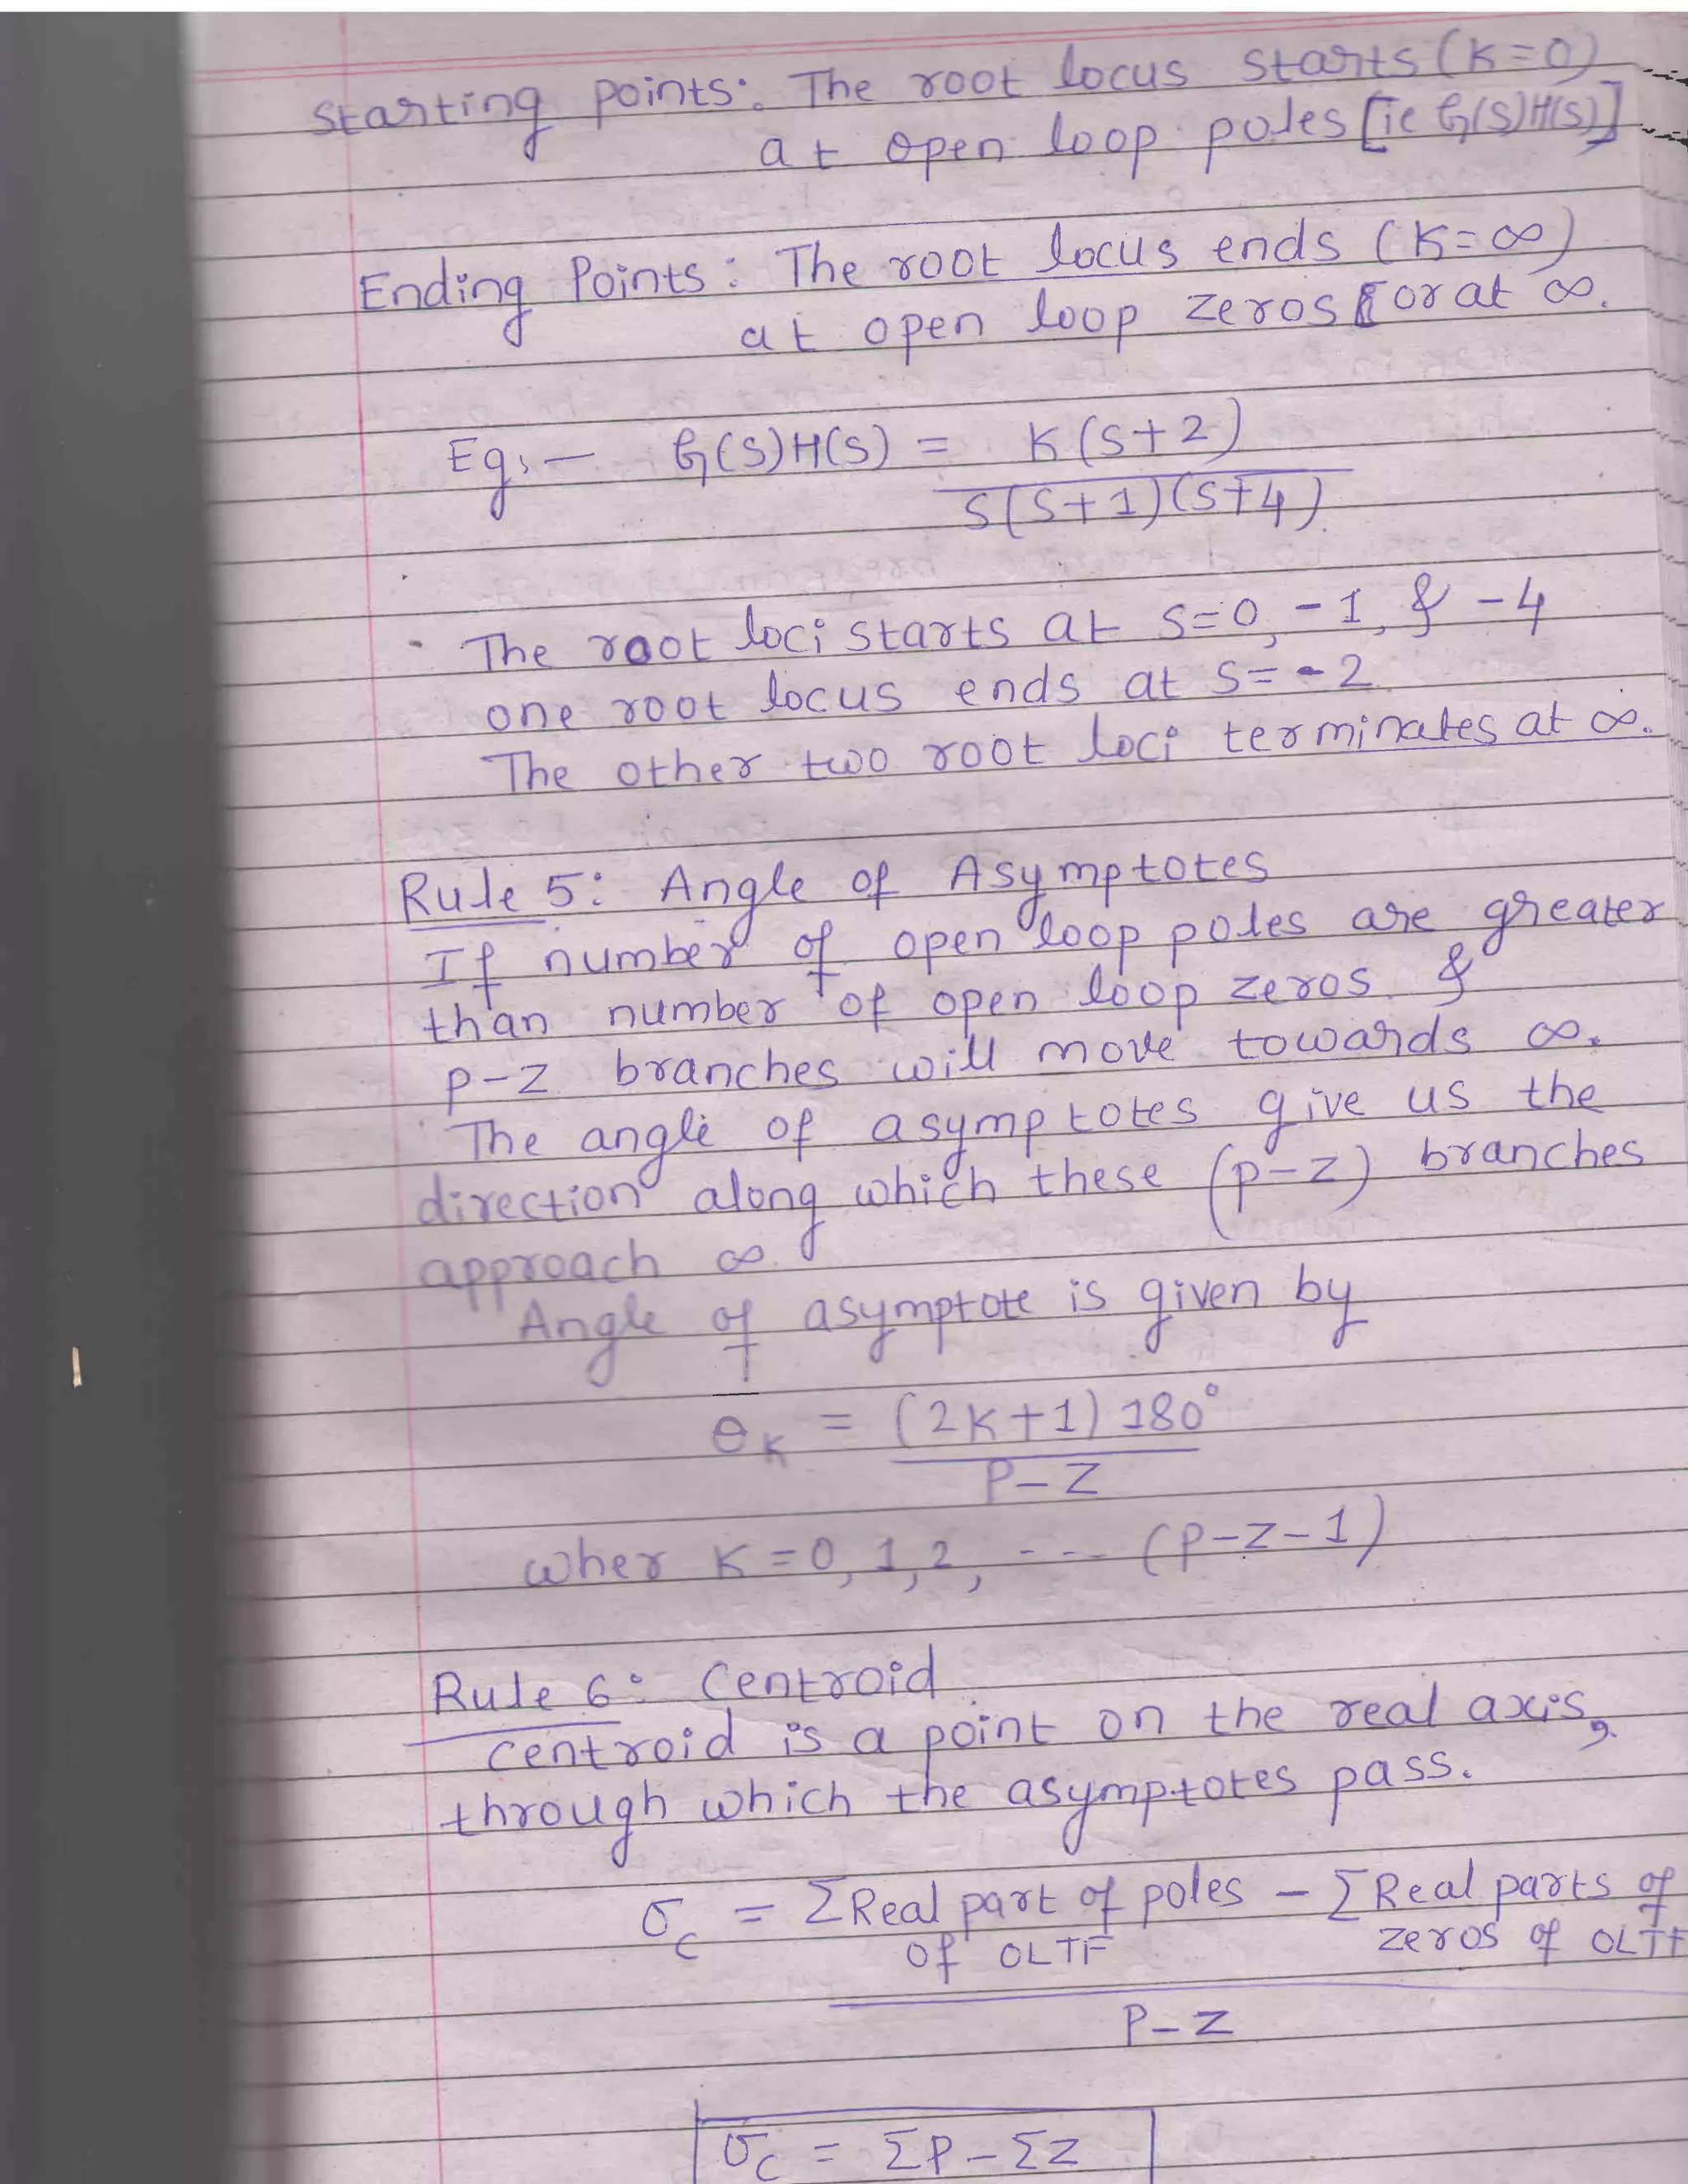 Starting points: The root locus starts (K=0)
at open loop poles [ie G(S)H(S)]
Ending Points: The root locus ends (K=∞)
at open loop zeros or at ∞.
Eg:- G(S)H(S) = K(S+2)
S(S+1)(S+4)
The root loci starts at S=0, -1, & -4
one root locus ends at S= -2
The other two root loci terminates at ∞.
Rule 5: Angle of Asymptotes
If number of open loop poles are greater
than number of open loop zeros &
P-Z branches will move towards ∞.
The angle of asymptotes give us the
direction along which these (P-Z) branches
approach ∞.
Angle of asymptote is given by
θK = (2K+1) 180°
P-Z
wher K = 0, 1, 2, --- (P-Z-1)
Rule 6: Centroid
centroid is a point on the real axis,
through which the asymptotes pass.
σc = Σ Real part of poles - Σ Real parts of
of OLTF zeros of OLTF
P-Z
σc = ΣP-ΣZ